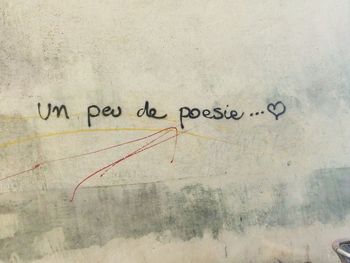 Un peu de poesie...♡